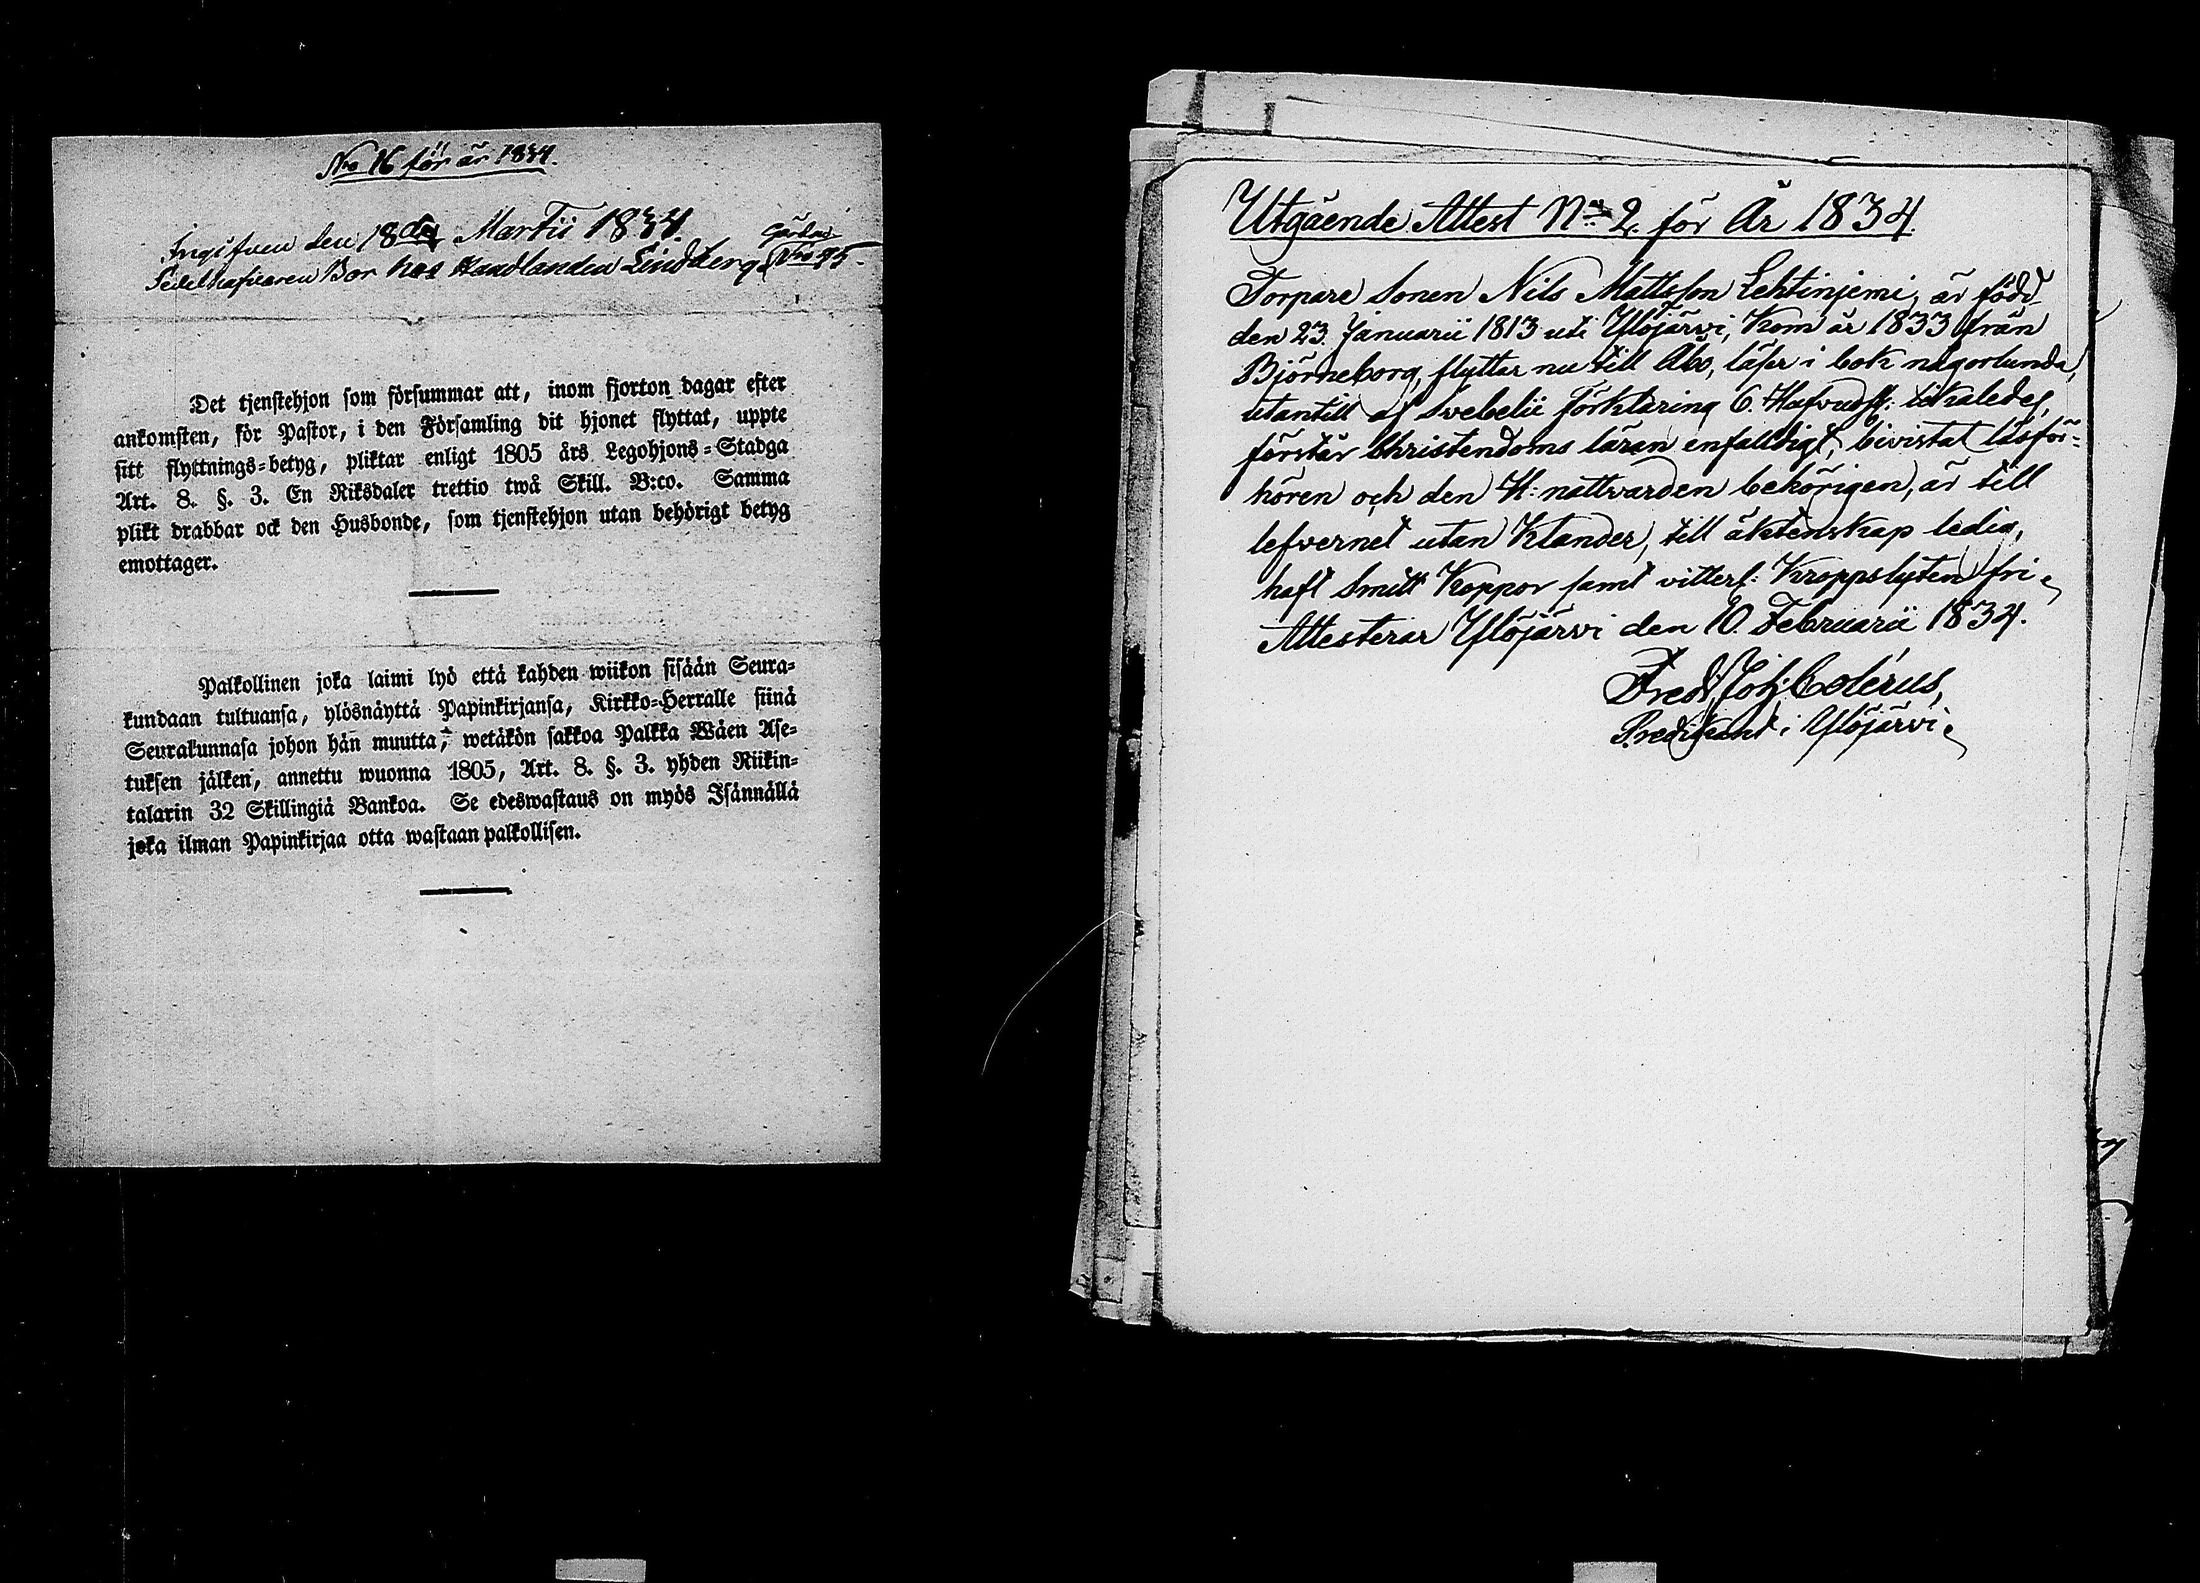 No 16 för år 1834.
Ingifven den 18de Martii 1834.
Sedelhafvaren Bor hos Handlanden Lindberg Gården No 95.
Det tjenstehjon som försummar att, inom fjorton dagar efter
ankomsten, för Pastor, i den Församling dit hjonet flyttat, uppte
sitt flyttnings=betyg, pliktar enligt 1805 års Legohjons=Stadga
Art. 8. §. 3. En Riksdaler trettio twå Skill. B:co. Samma
plikt drabbar ock den Husbonde, som tjenstehjon utan behörigt betyg
emottager.
Palkollinen joka laimi lyö että kahden wiikon sisään Seura=
kundaan tultuansa, ylösnäyttä Papinkirjansa, Kirkko=Herralle siinä
Seurakunnasa johon hän muutta, wetäkön sakkoa Palkka Wäen Ase=
tuksen jälken, annettu wuonna 1805, Art. 8. §. 3. yhden Riikin=
talarin 32 Skillingiä Bankoa. Se edeswastaus on myös Isännällä
joka ilman Papinkirjaa otta wastaan palkollisen.
Utgående Attest No 2. för År 1834.
Torpare Sonen Nils Mattsson Lehtinjemi, är född
den 23. Januarii 1813 uti Ylöjärvi, Kom år 1833 från
Björneborg, flyttar nu till Åbo, läser i bok någorlunda,
utantill af Svebelii Förklaring 6. Hufvudst: likaledes,
förstår Christendoms läran enfalldigt, bivistat läsför-
hören och den H: nattvarden behörigen, är till
lefvernet utan Klander, till äktenskap ledig,
haft Smitt Koppor samt vitterl: Kroppslyten fri.
Attesterar Ylöjärvi den 10. Februarii 1834.
Fredr Joh: Colérus,
Predikant i Ylöjärvi.